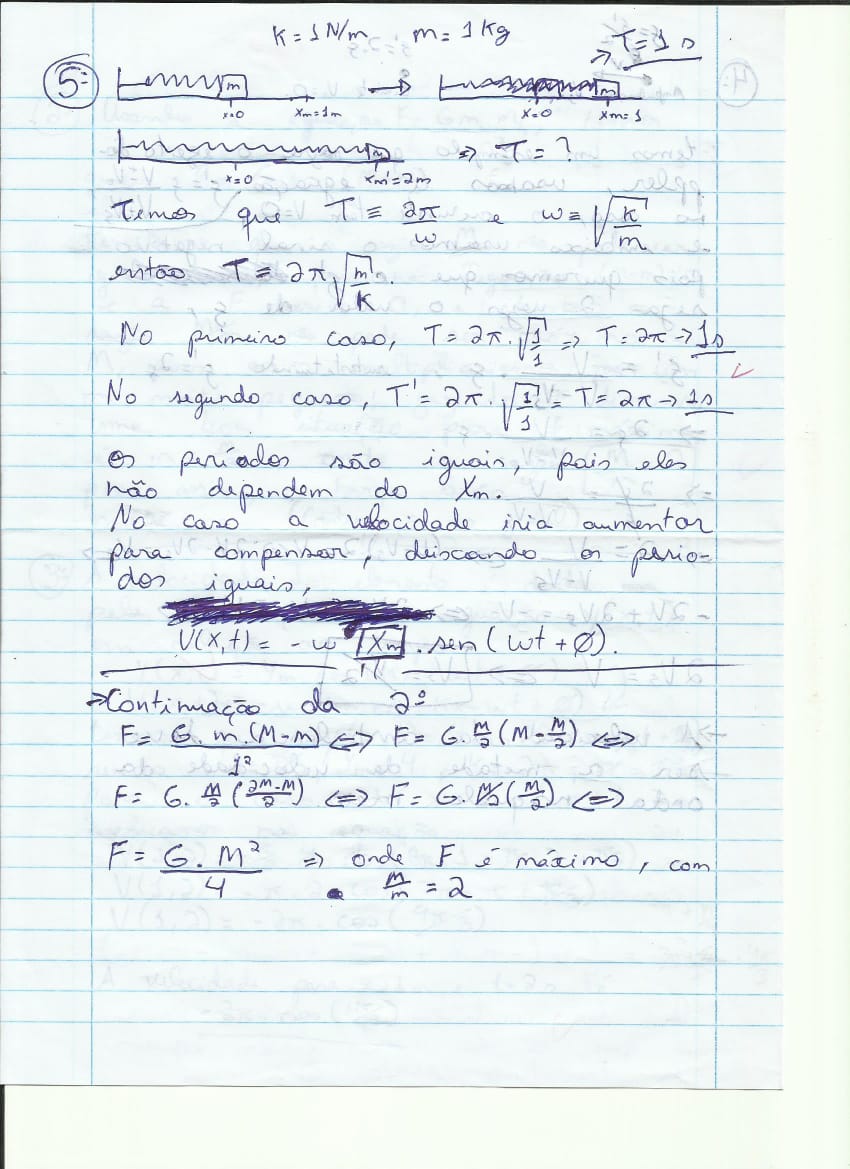 K = 1 N/m m = 1 Kg
=> T = 1 s
5:
m x=0 xm=1m → m x=0 xm=1
m x=0 xm'=2m => T = ?
Temos que T ≡ 2π/ω e ω ≡ √(k/m)
então T ≡ 2π√(m/K).
No primeiro caso, T = 2π.√(1/1) => T = 2π → 1s
No segundo caso, T' = 2π.√(1/1) = T = 2π → 1s
Os períodos são iguais, pois eles
não dependem do Xm.
No caso a velocidade iria aumentar
para compensar, deixando os perio-
dos iguais,
V(x,t) = - ω Xm . sen(ωt + Ø).
=> Continuação da 2º
F = G.m.(M-m)/1² <=> F = G.M/2(M-M/2) <=>
F = G.M/2(2M-M/2) <=> F = G.M/2(M/2) <=>
F = G.M²/4 => onde F é máximo, com
M/m = 2